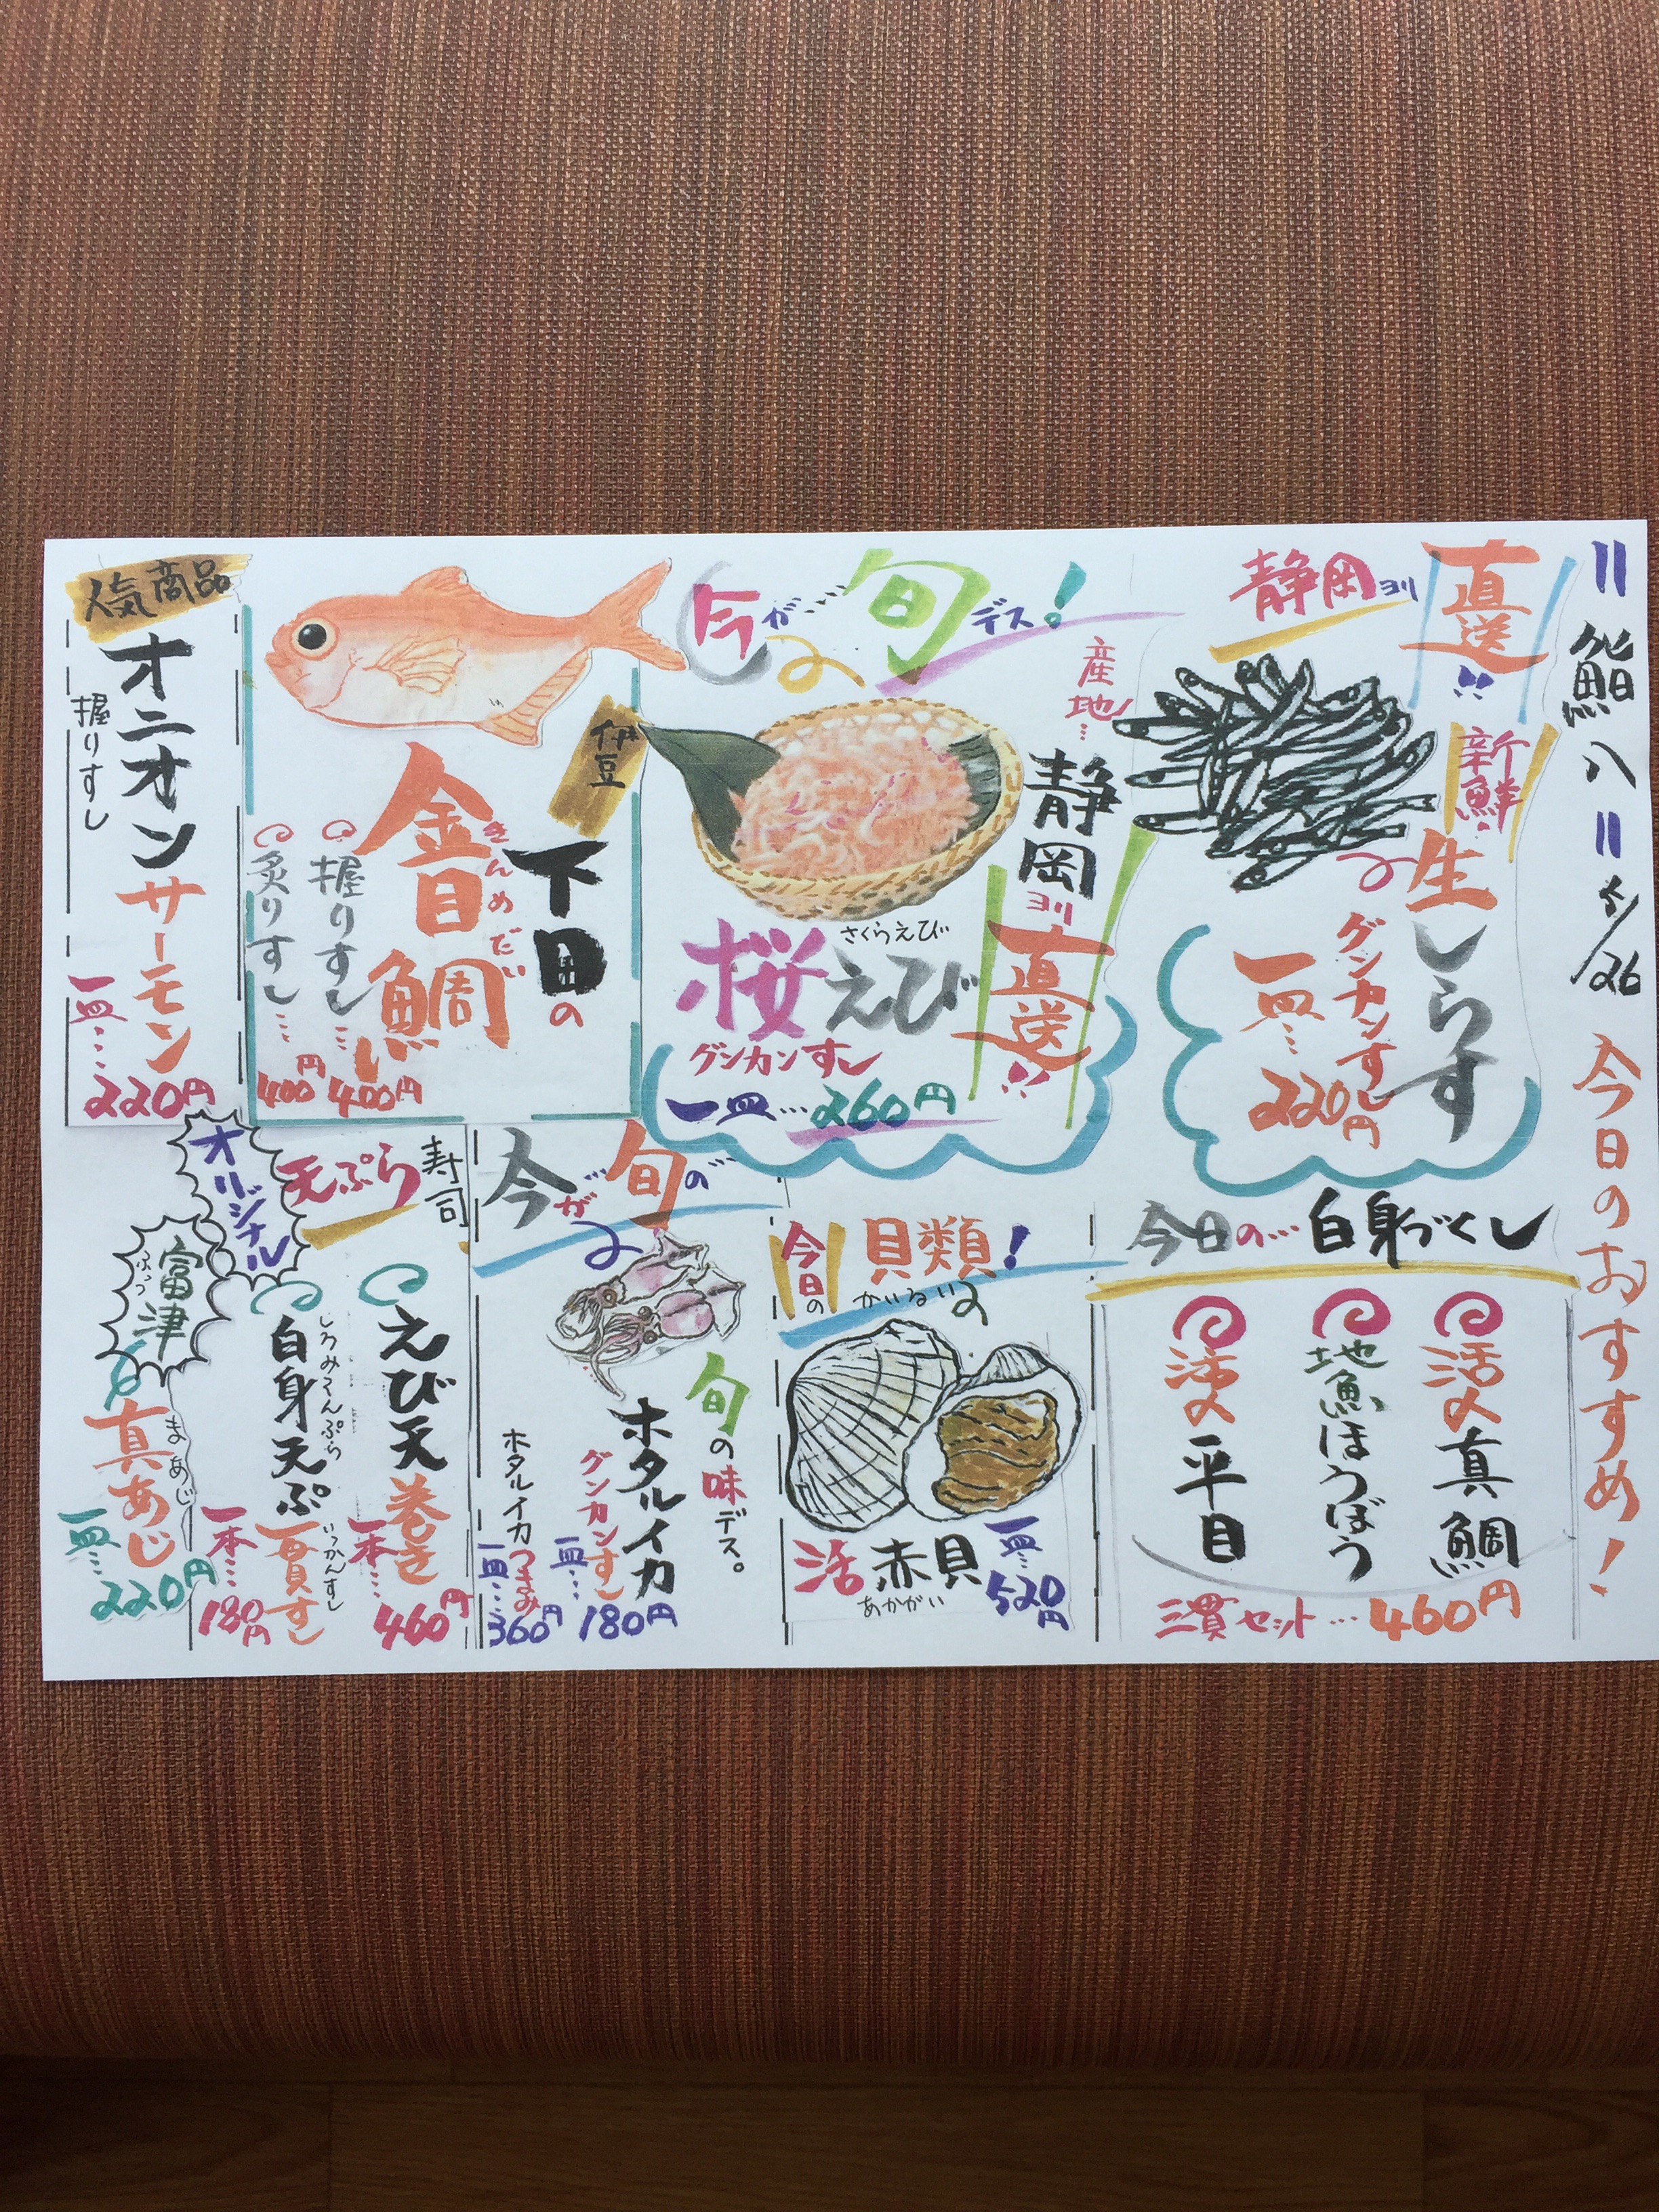 =鮨八= 5/26 今日のおすすめ!
静岡ヨリ
直送!!
新鮮!
生しらす
グンカンすし
一皿…220円
今が…旬デス!
産地…
静岡ヨリ
直送!!
さくらえび
桜えび
グンカンすし
一皿…260円
伊豆
下田の
きんめだい
金目鯛
握りすし…400円
炙りすし…400円
人気商品
オニオンサーモン
握りすし
一皿…220円
今日の…白身づくし
活〆真鯛
地魚ほうぼう
活〆平目
三貫セット…460円
今日の
貝類!
かいるい
活赤貝
あかがい
一皿…520円
今が旬の…
旬の味デス。
ホタルイカ
グンカンすし
一皿…180円
ホタルイカつまみ
一皿…360円
オリジナル
天ぷら寿司
えび天巻き
一本…460円
しろみてんぷら
白身天ぷら
いっかんすし
一貫すし
一本…180円
富津
ふっつ
まあじ
真あじ
一皿…220円